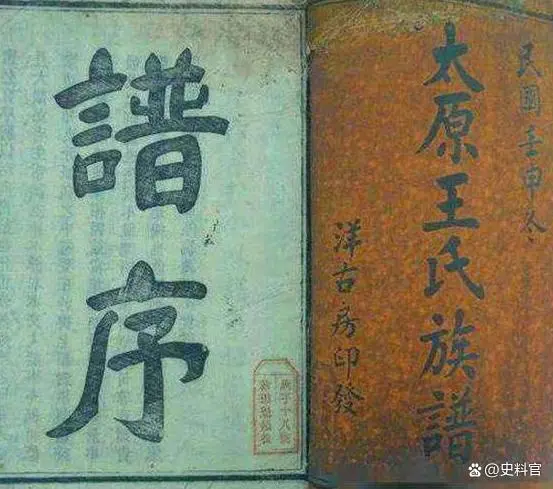 民國壬申冬
太原王氏族譜
洋古房印發
譜序
@史料官